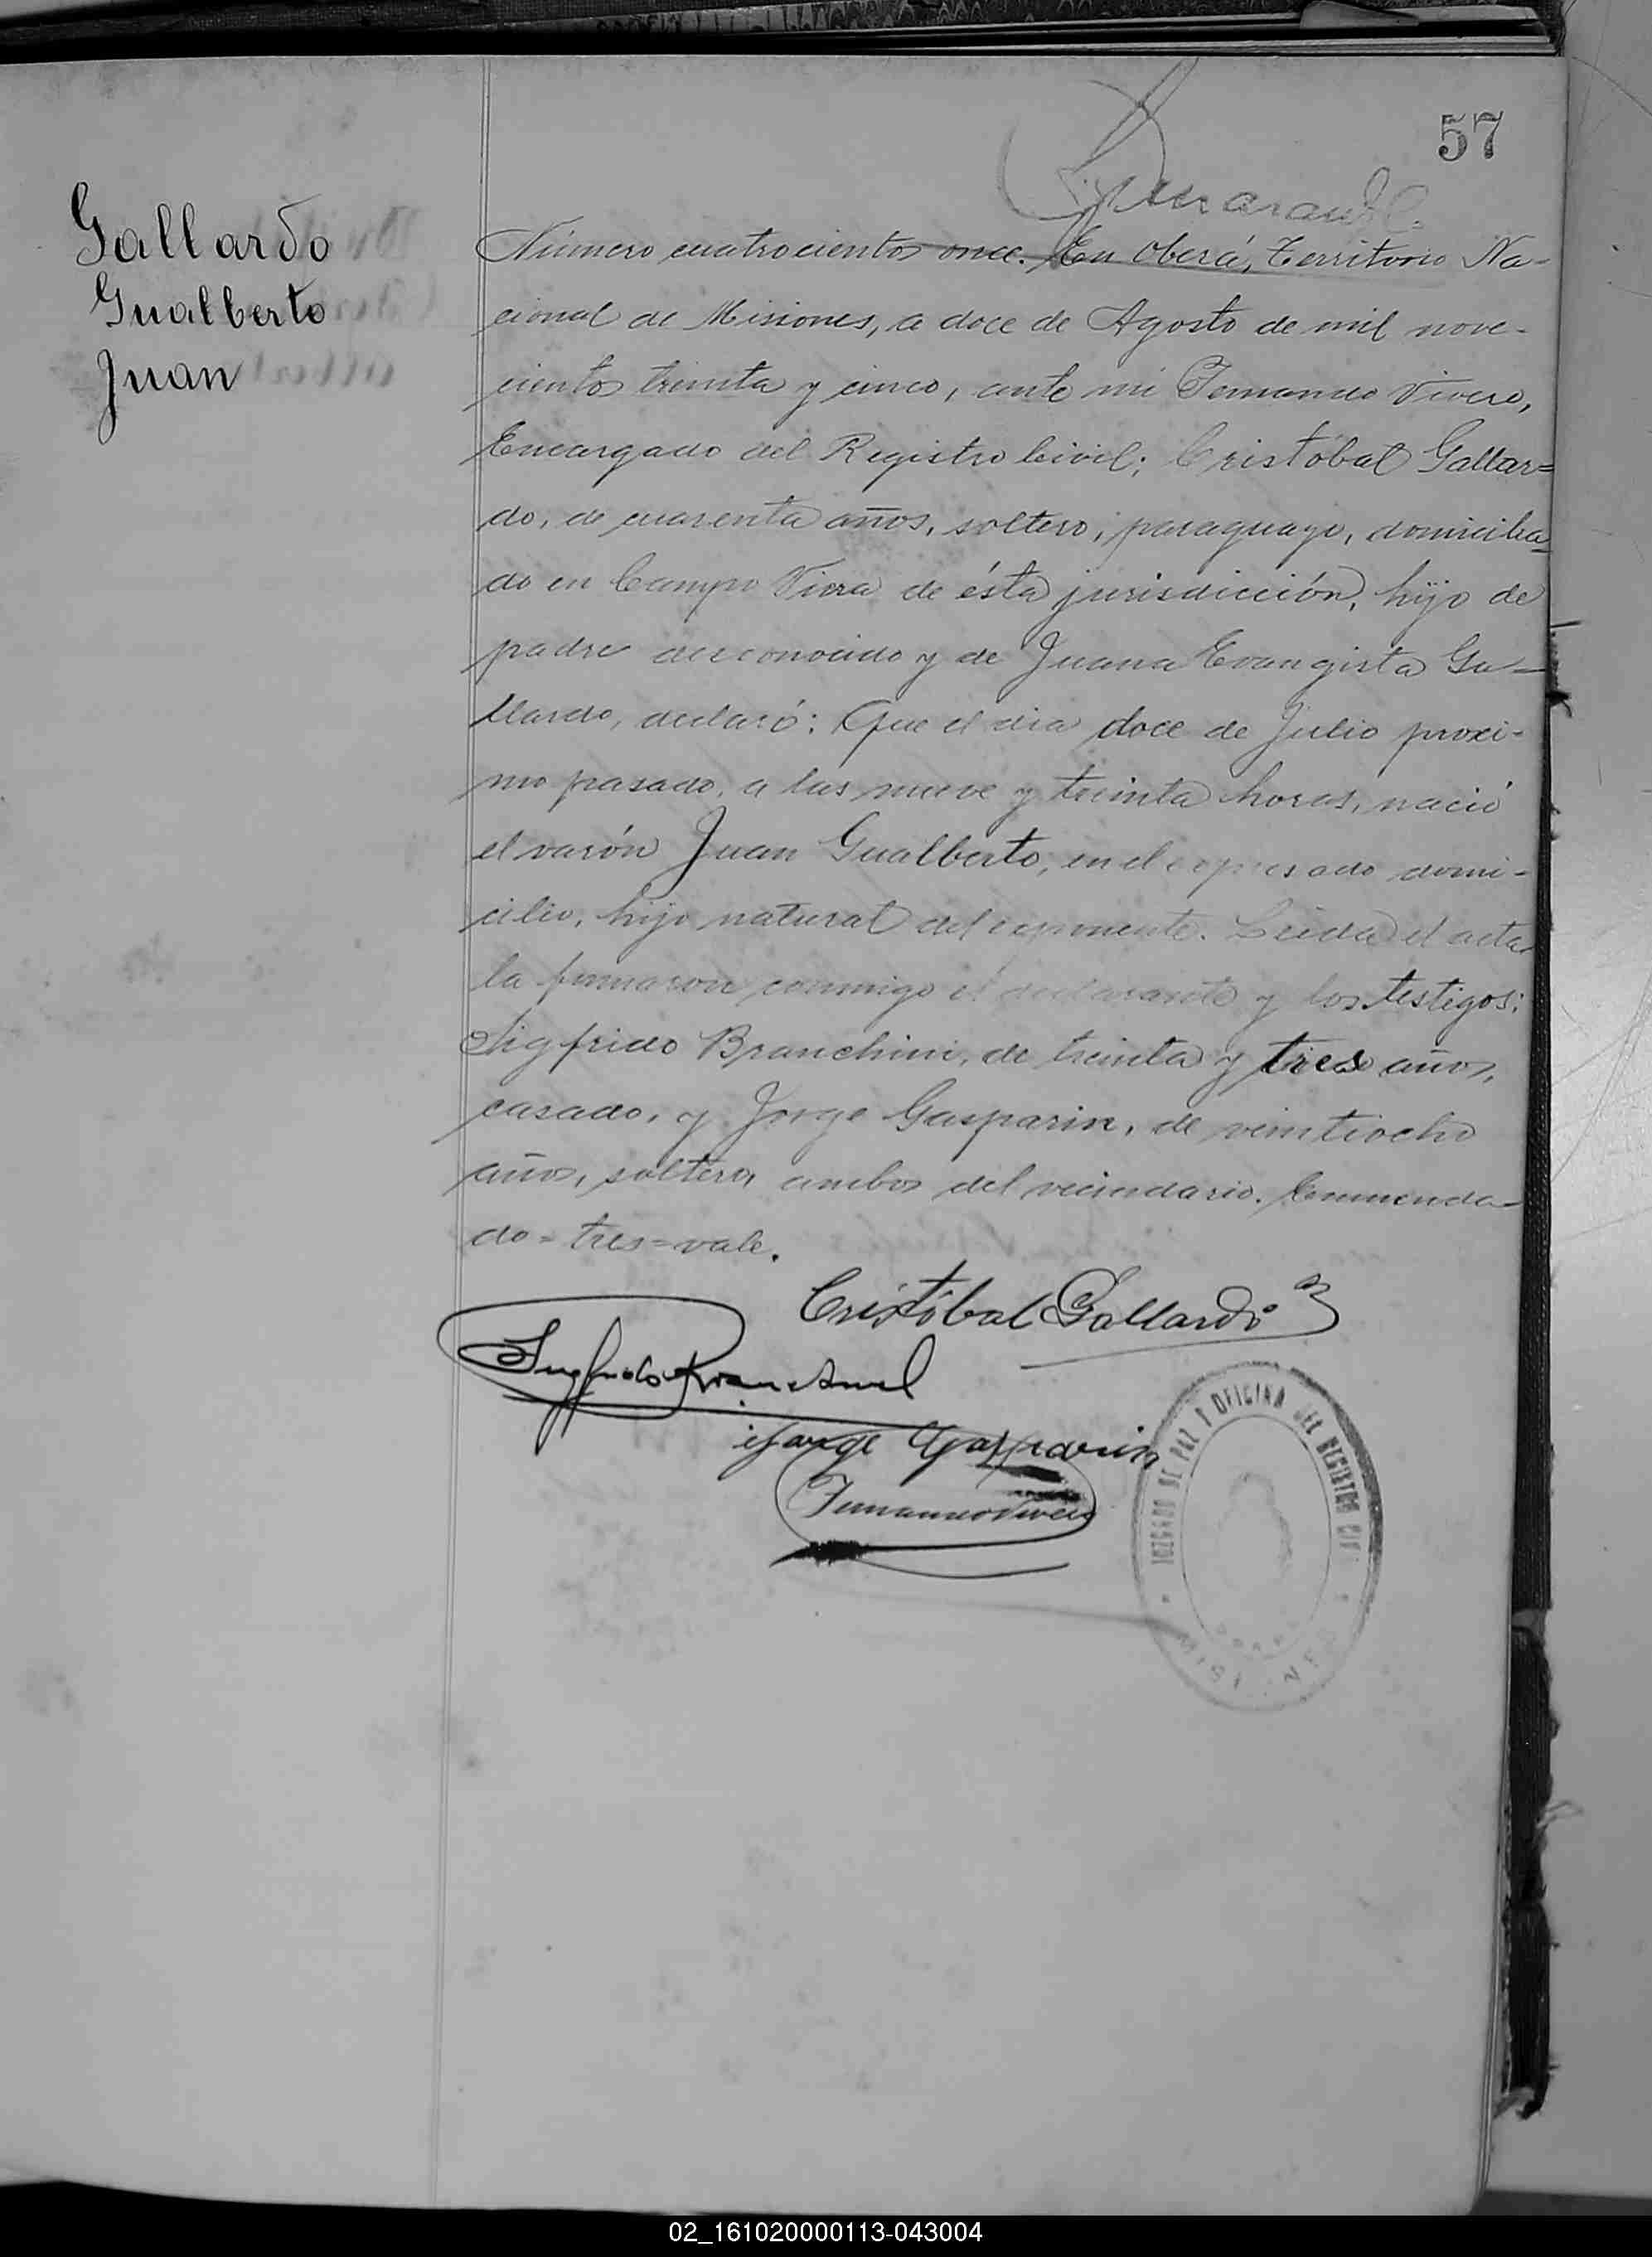 57
Gallardo
Gualberto
Juan
Número cuatrocientos once. En Oberá, Territorio Na-
cional de Misiones, a doce de Agosto de mil nove-
cientos treinta y cinco, ante mi Fernando Vivero,
Encargado del Registro Civil; Cristóbal Gallar=
do, de cuarenta años, soltero, paraguayo, domicilia-
do en Campo Viera de ésta jurisdicción, hijo de
padre desconocido y de Juana Evangista Ga-
llardo, declaró: Que el dia doce de Julio proxi-
mo pasado, a las nueve y treinta horas, nació
el varón Juan Gualberto, en el expresado domi-
cilio, hijo natural del exponente. Leida el acta
la firmaron conmigo el declarante y los testigos:
Sigfrido Branchini, de treinta y tres años,
casado, y Jorge Gasparin, de veintiocho
años, soltero, ambos del vecindario. Enmenda-
do = tres = vale.
Cristóbal Gallardo
Jorge Gasparin
Fernando Vivero
JUZGADO DE PAZ Y OFICINA DEL REGISTRO CIVIL
02_161020000113-043004